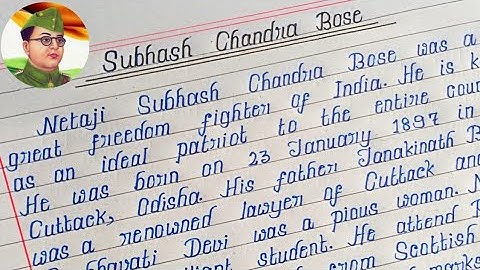 Subhash Chandra Bose
Netaji Subhash Chandra Bose was a
great freedom fighter of India. He is
as an ideal patriot to the entire
He was born on 23 January 1897 in
Cuttack, Odisha. His father Janakinath
was a renowned lawyer of Cuttack and
Devi was a pious woman.
student. He attend
from Scottish
marks